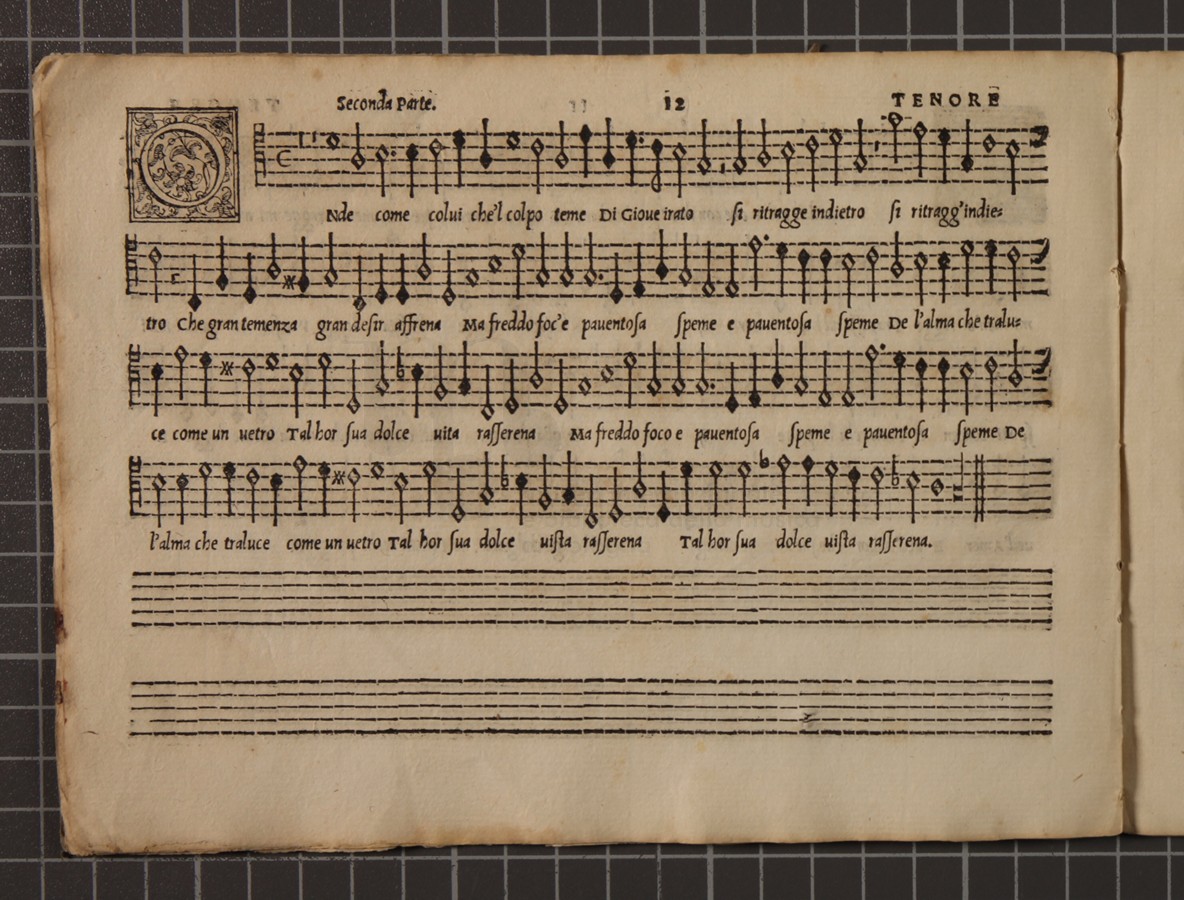 Seconda Parte. 12 TENORE
O Nde come colui che'l colpo teme Di Gioue irato si ritragge indietro si ritragg'indie=
tro Che gran temenza gran desir affrena Ma freddo foc'e pauentosa speme e pauentosa speme De l'alma che tralu=
ce come un uetro Tal hor sua dolce uita rasserena Ma freddo foco e pauentosa speme e pauentosa speme De
l'alma che traluce come un uetro Tal hor sua dolce uista rasserena Tal hor sua dolce uista rasserena.